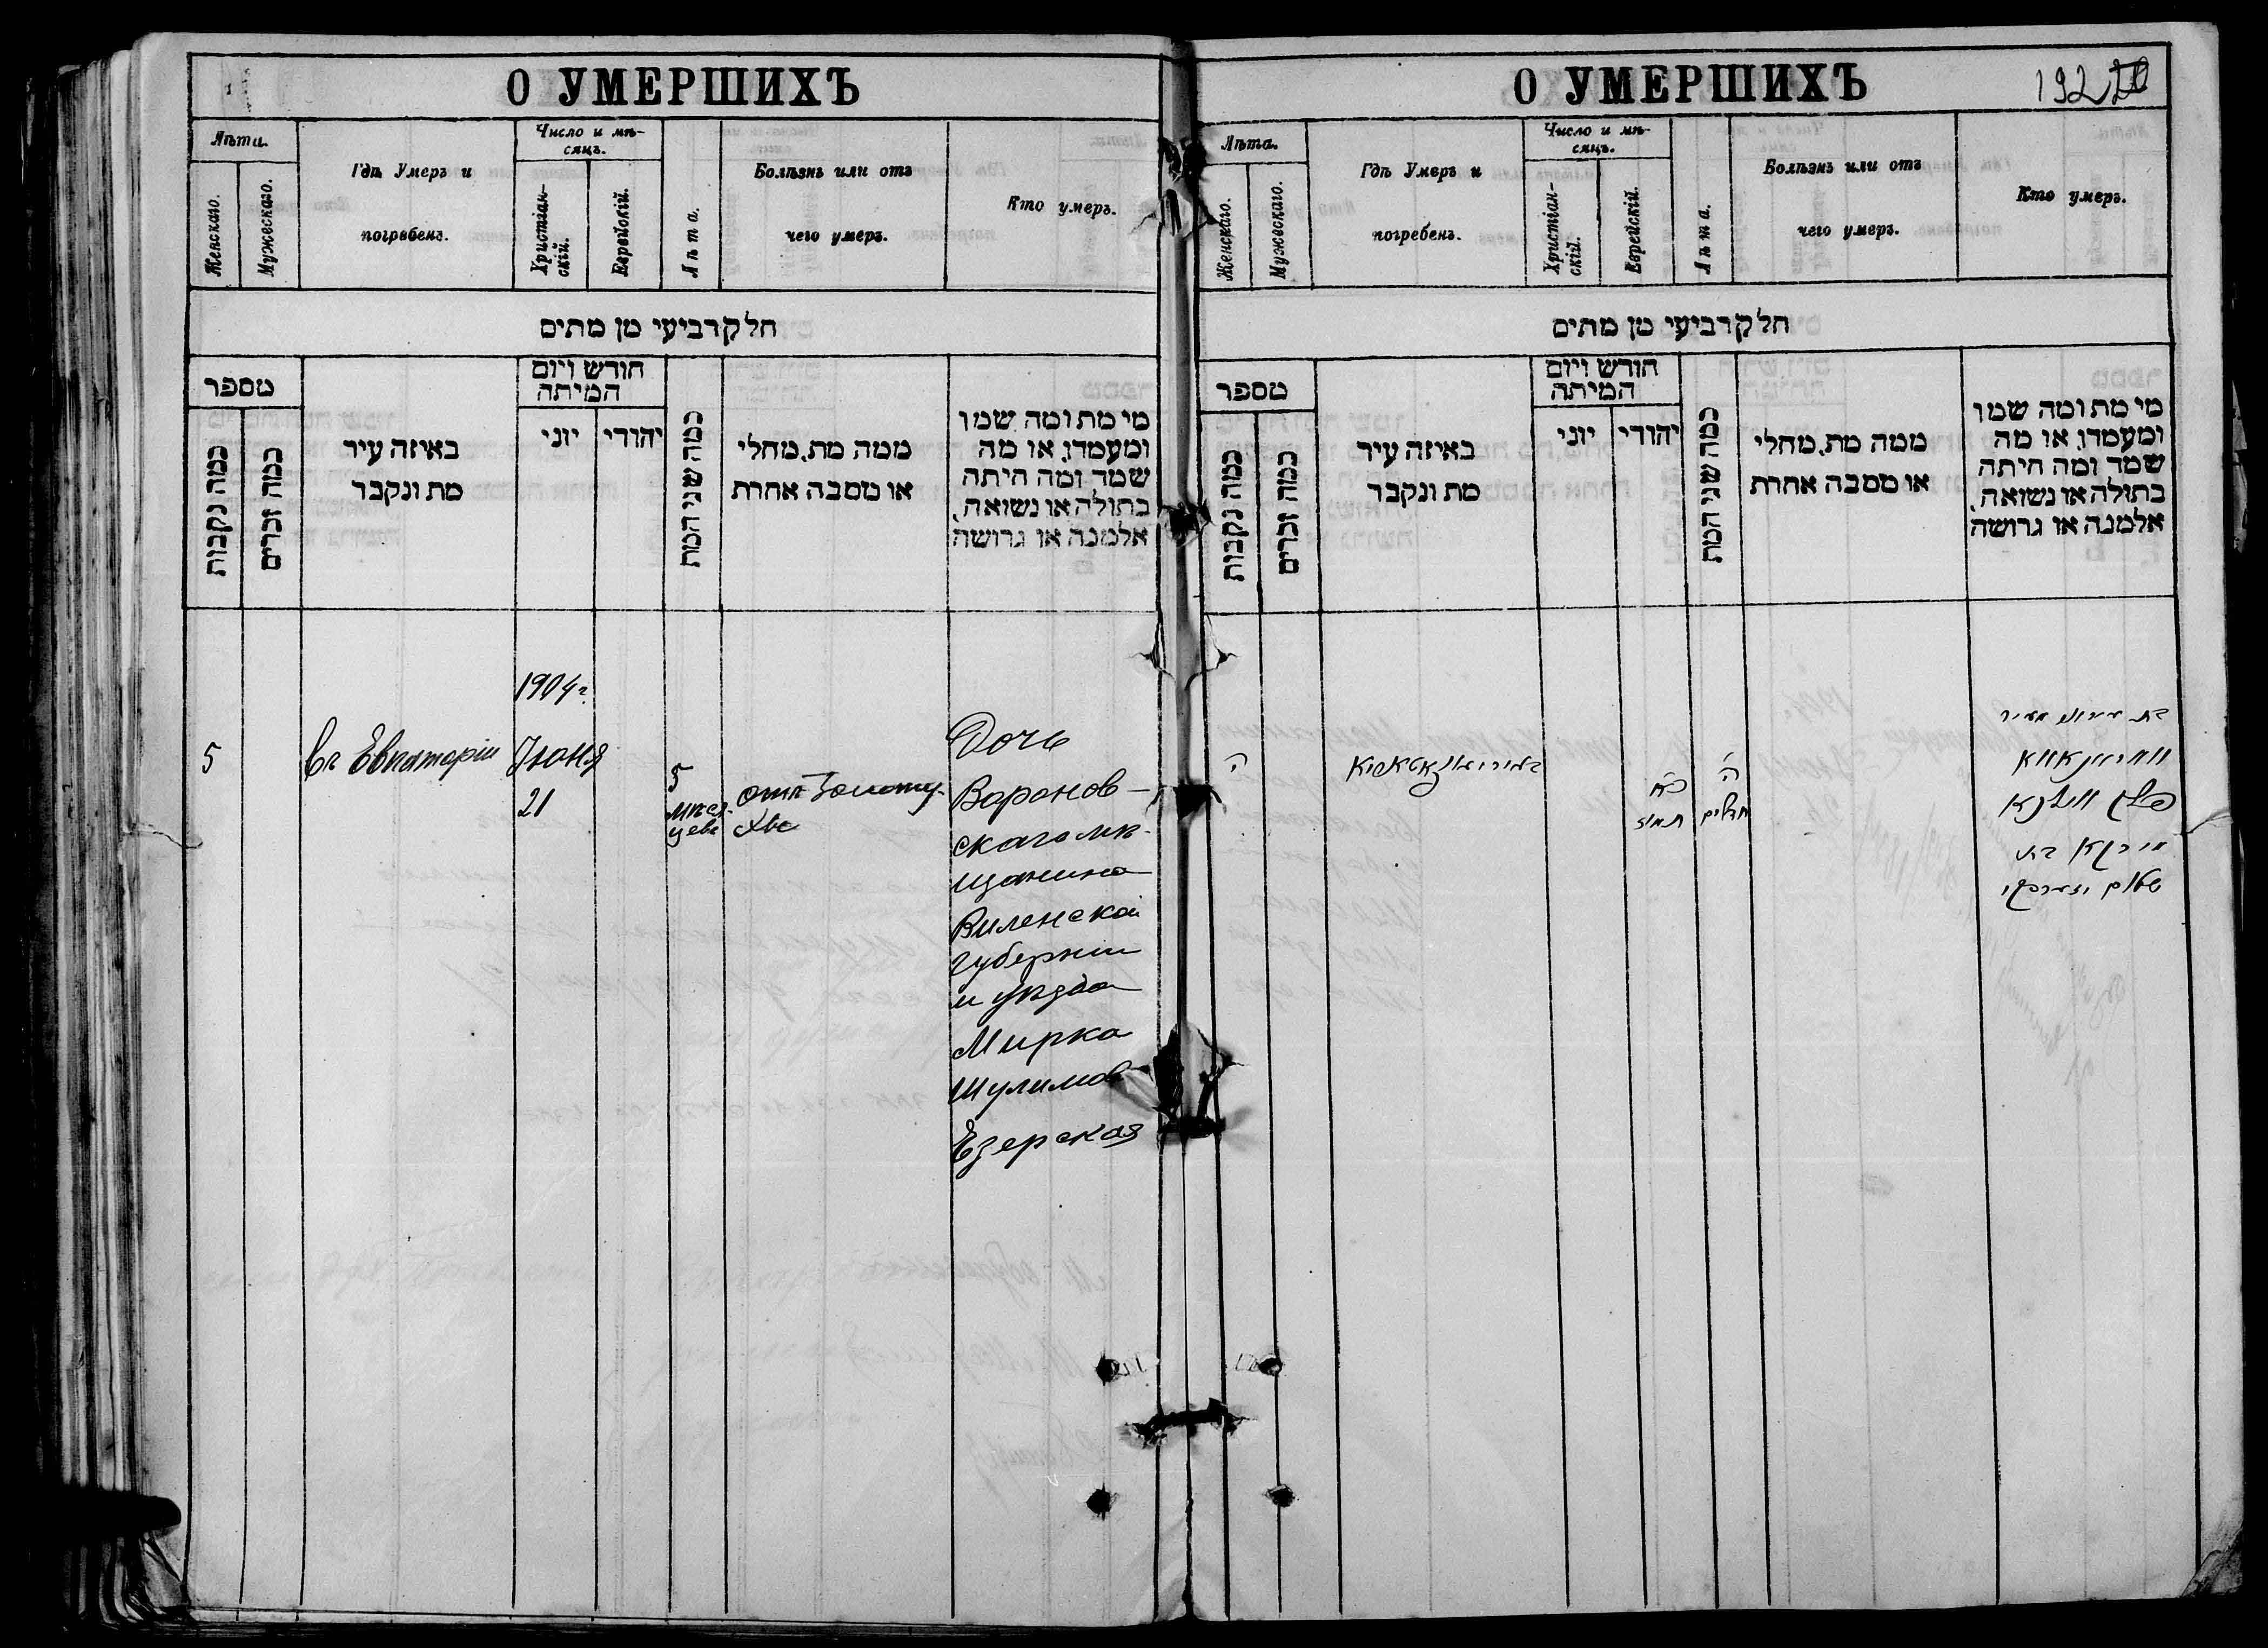 О УМЕРШИХЪ
Лѣта.
Женскаго.
Мужескаго.
Гдѣ Умеръ и
погребенъ.
Число и мѣ-
сяцъ.
Христіан-
скій.
Еврейскій.
Лѣта.
Болѣзнь или отъ
чего умеръ.
Кто умеръ.
חלק רביעי מן מתים
מספר
כמה נקבות
כמה זכרים
באיזה עיר
מת ונקבר
חורש ויום
המיתה
יוני
יהודי
כמה שני המת
ממה מת, מחלי
או מסבה אחרת
מי מת ומה שמו
ומעמדו, או מה
שמה ומה היתה
בתולה או נשואה,
אלמנה או גרושה
5
Въ Евпаторіи
1904 г.
Іюня
21
5
мѣся-
цевъ
отъ Золоту-
хи
Дочь
Воронов-
скаго мѣ-
щанина
Виленской
губерніи
и уѣзда
Мирка
Шулимов
Езерская
О УМЕРШИХЪ
192
Лѣта.
Женскаго.
Мужескаго.
Гдѣ Умеръ и
погребенъ.
Число и мѣ-
сяцъ.
Христіан-
скій.
Еврейскій.
Лѣта.
Болѣзнь или отъ
чего умеръ.
Кто умеръ.
חלק רביעי מן מתים
מספר
כמה נקבות
כמה זכרים
באיזה עיר
מת ונקבר
חורש ויום
המיתה
יוני
יהודי
כמה שני המת
ממה מת, מחלי
או מסבה אחרת
מי מת ומה שמו
ומעמדו, או מה
שמה ומה היתה
בתולה או נשואה,
אלמנה או גרושה
ה
תמוז
ה
חדשים
פלך ווילנא
מירקא בת
שלום יזערסקי